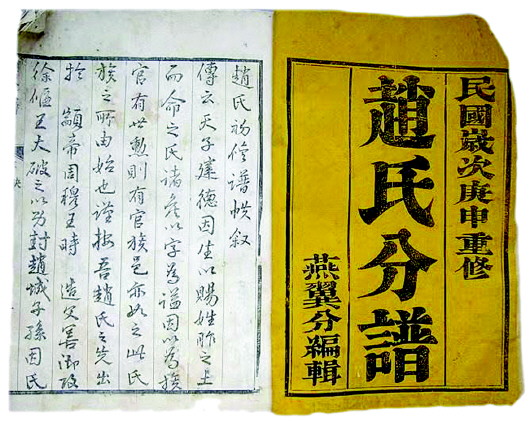 民國歲次庚申重修
趙氏分譜
燕翼分編輯
趙氏初修谱帙叙
傳云天子建德因生以賜姓胙之土
而命之氏諸矦以字為謚因以為族
官有世勲則有官族邑亦如之此氏
族之所由始也谨按吾趙氏之先出
於 顓帝周穆王時 造父善御攻
徐偃王大破之以功封趙城子孫因氏